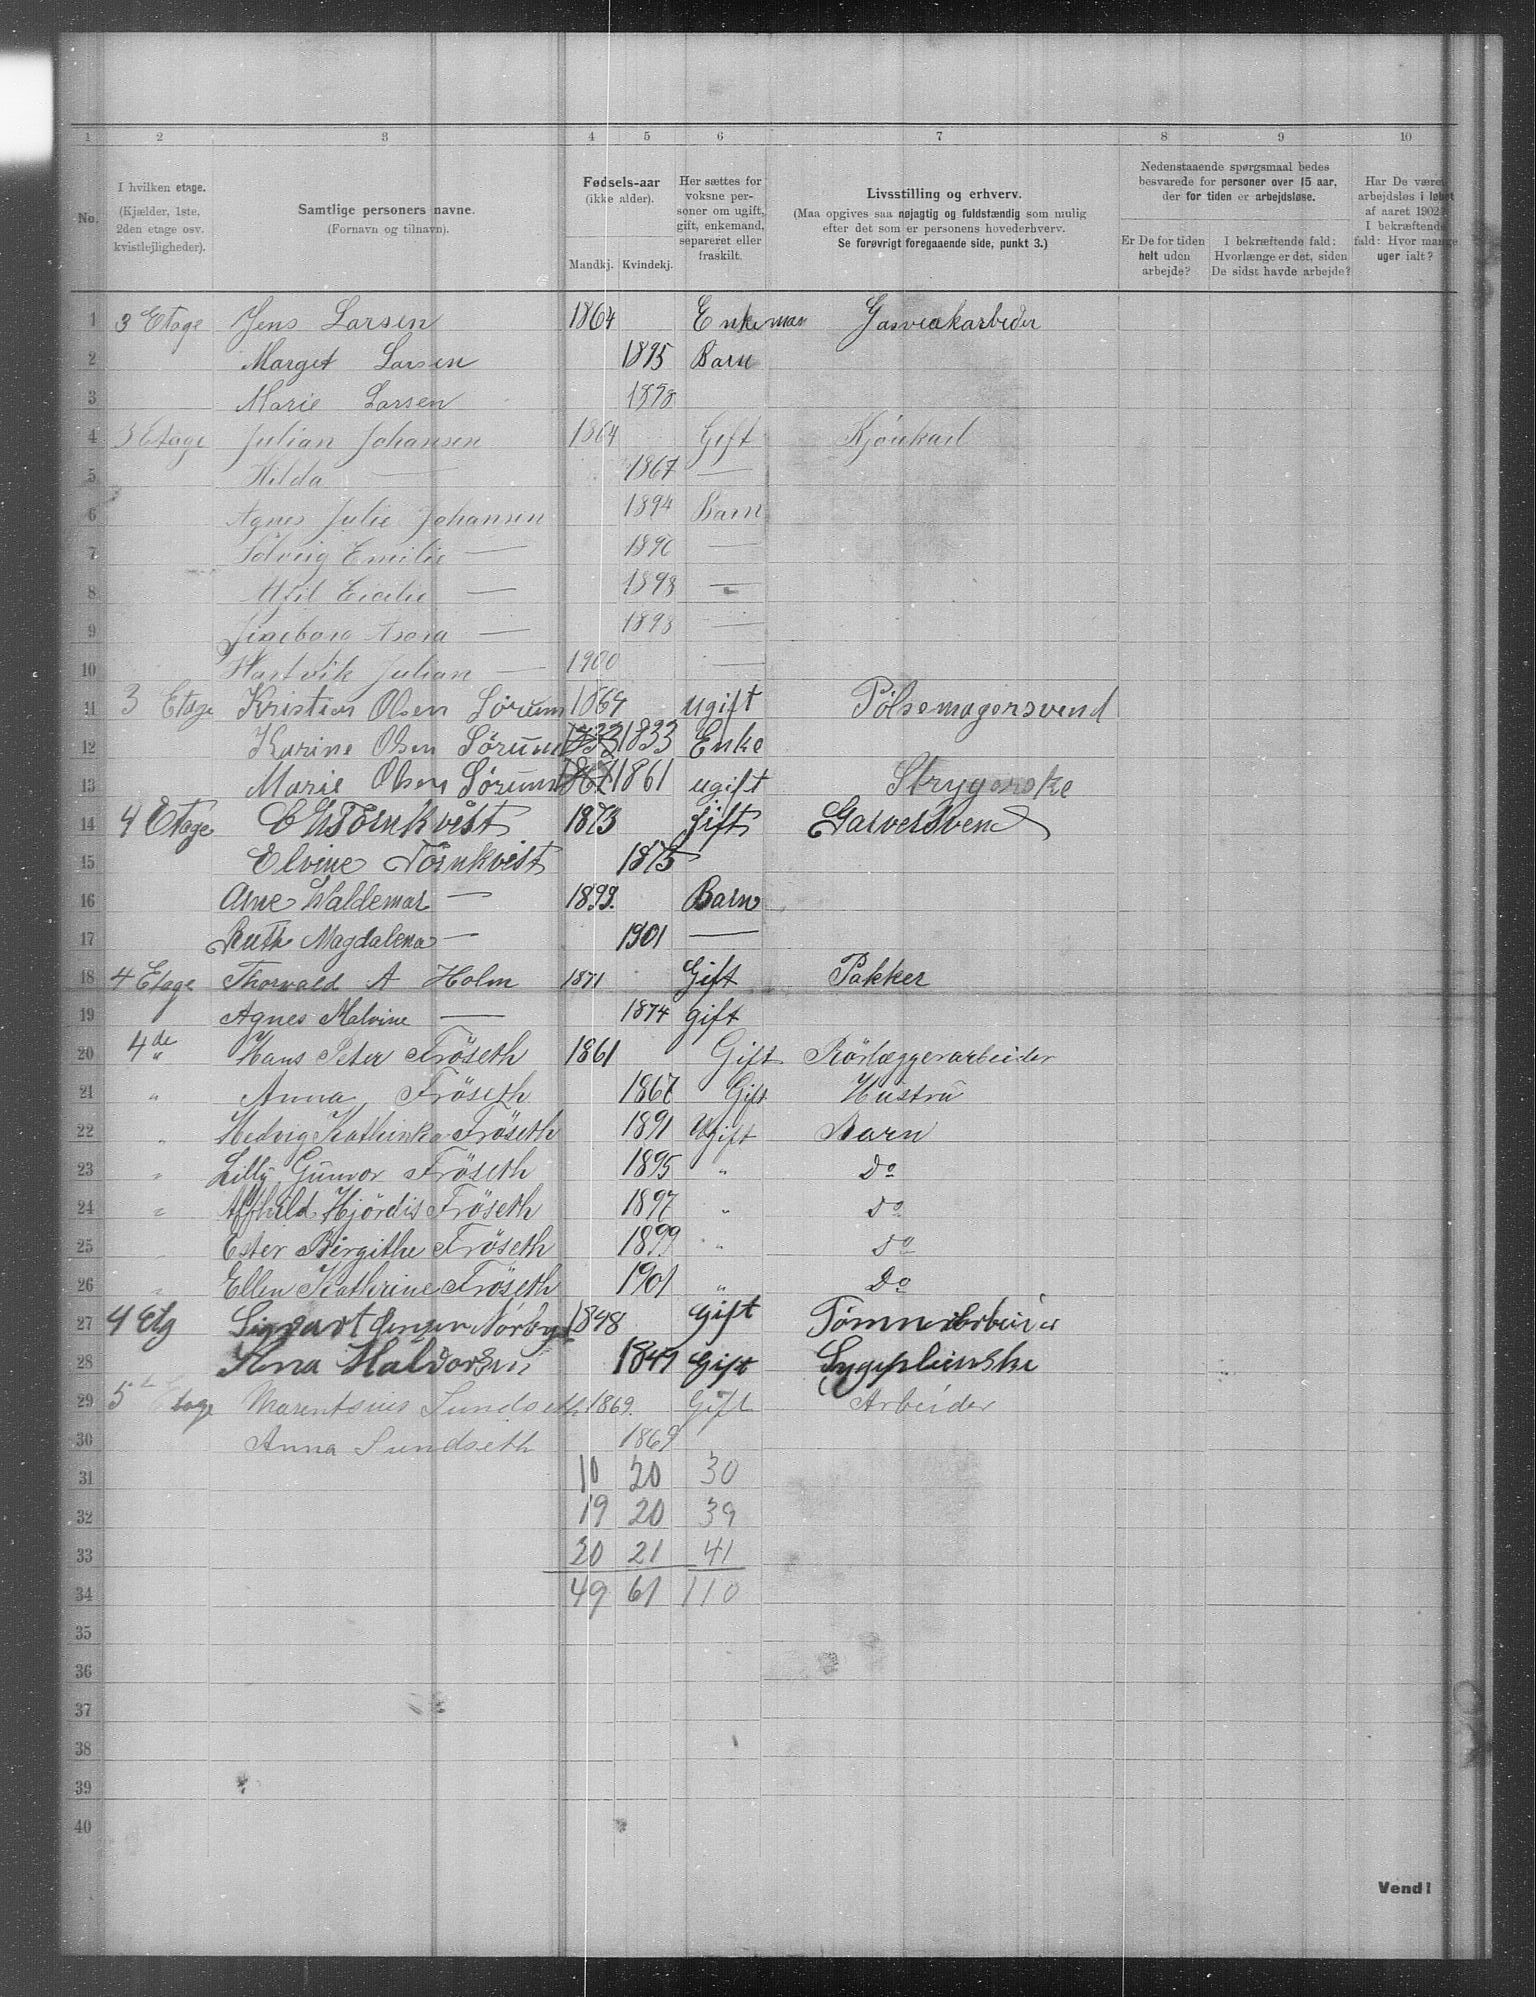 1 2 3 4 5 6 7 8 9 10
No.
I hvilken etage.
(Kjælder, 1ste,
2den etage osv.
kvistlejligheder).
Samtlige personers navne.
(Fornavn og tilnavn).
Fødsels-aar
(ikke alder).
Mandkj. Kvindekj.
Her sættes for
voksne per-
soner om ugift,
gift, enkemand,
separeret eller
fraskilt.
Livsstilling og erhverv.
(Maa opgives saa nøjagtig og fuldstændig som mulig
efter det som er personens hovederhverv.
Se forøvrigt foregaaende side, punkt 3.)
Nedenstaaende spørgsmaal bedes
besvarede for personer over 15 aar,
der for tiden er arbejdsløse.
Er De for tiden
helt uden
arbejde?
I bekræftende fald:
Hvorlænge er det, siden
De sidst havde arbejde?
Har De været
arbejdsløs i løbet
af aaret 1902?
I bekræftende
fald: Hvor mange
uger ialt?
1 3 Etage Jens Larsen 1864 Enkeman Gasverkarbeder
2 Marget Larsen 1895 Barn
3 Marie Larsen 1898
4 3 Etage Julian Johansen 1864 Gift
5 Hilda — 1867 —
6 Agnes Julie Johansen 1894 Barn
7 Solveig Emilie — 1896 —
8 — 1898 —
9 Ingeborg — 1898 —
10 Hartvik Julian — 1900 —
11 3 Etage Kristian Olsen Sörum 1864 ugift Pölsemagersvend
12 Karine Olsen Sörum 1833 1833 Enke
13 Marie Olsen Sörum 1861 1861 ugift Strygerske
14 4 Etage Törnkvist 1873 Gift Garversvend
15 Elvine Törnkvist 1875
16 Arne Waldemar — 1899. Barn
17 Ruth Magdalena — 1901 —
18 4 Etage Thorvald A Holm 1871 Gift Pakker
19 Agnes Malvine — 1874 gift
20 4de " Hans Peter Fröseth 1861 Gift Rörlæggerarbeider
21 " Anna Fröseth 1867 Gift Hustru
22 " Hedvig Kathinka Fröseth 1891 Ugift Barn
23 " Lilly Gunvor Fröseth 1895 " Do
24 " Alfhild Hjördis Fröseth 1897 " Do
25 " Ester Birgithe Fröseth 1899 " Do
26 " Ellen Kathrine Fröseth 1901 " Do
27 4 Etg Sigvart Jensen Nörby 1848 Gift Tømmerarbeider
28 Haldorsen 1849 Gift Sygepleierske
29 5 Etage Marentsius Sundseth 1869. Gift Arbeider
30 Anna Sundseth 1869
31 10 20 30
32 19 20 39
33 20 21 41
34 49 61 110
35
36
37
38
39
40
Vend!